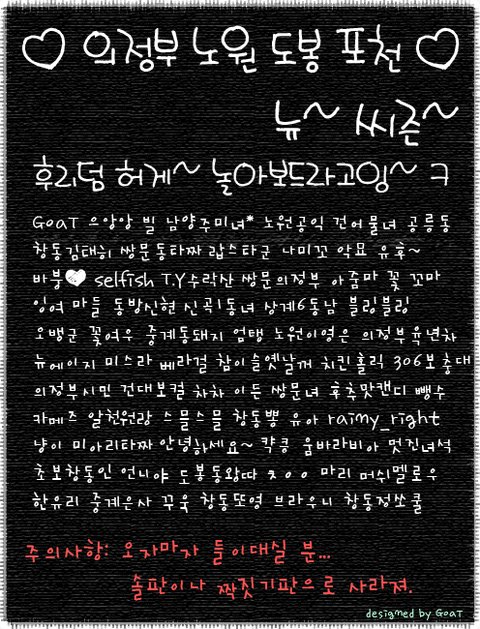 ♡ 의정부 노원 도봉 포천 ♡
뉴~ 씨즌~
후리덤 허게~ 놀아보드라고잉~ ㅋ
GoaT 으앙앙 빌 남양주미녀* 노원공익 건어물녀 공릉동
창동김태희 쌍문동타짜 랍스타군 나미꼬 악묘 유후~
바붕♥ selfish T.Y수락산 쌍문의정부 아줌마 꽃 꼬마
잉여 마들 동방신현 신곡1동녀 상계6동남 블링블링
오뱅군 꽃여우 중계동돼지 엄탱 노원이영은 의정부유년차
뉴에이지 미스라 베라걸 참이슬옛날꺼 치킨홀릭 306보충대
의정부시민 건대보컬 차차 이든 쌍문녀 후추맛캔디 뺑수
카메즈 알천원랑 스믈스믈 창동뿅 유아 rainy_right
냥이 미아리타짜 안녕하세요~ 캭쿵 움바라비아 멋진녀석
초보창동인 언니야 도봉동왕따 ㅊㅇㅇ 마리 머쉬멜로우
한유리 중계은사 꾸욱 창동또영 브라우니 창동정쏘쿨
주의사항: 오자마자 들이대실 분...
솔판이나 짝짓기판으로 사라져.
designed by GoaT